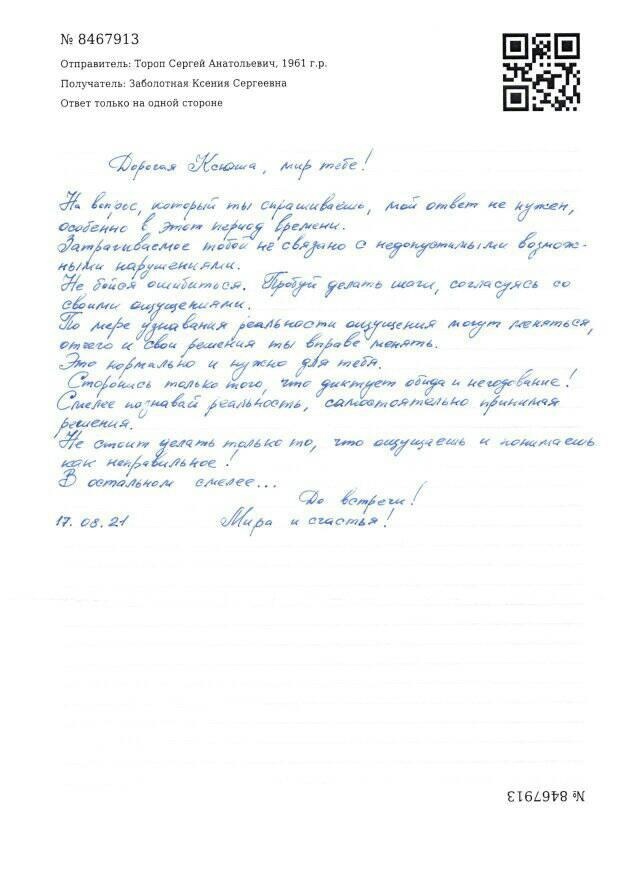 № 8467913
Отправитель: Тороп Сергей Анатольевич, 1961 г.р.
Получатель: Заболотная Ксения Сергеевна
Ответ только на одной стороне
Дорогая Ксюша, мир тебе!
На вопрос, который ты спрашиваешь, мой ответ не нужен,
особенно в этот период времени.
Затрагиваемое тобой не связано с недопустимыми возмож-
ными нарушениями.
Не бойся ошибиться. Пробуй делать шаги, согласуясь со
своими ощущениями.
По мере узнавания реальности ощущения могут меняться,
отчего и свои решения ты вправе менять.
Это нормально и нужно для тебя.
Сторонись только того, что диктует обида и негодование!
Смелее познавай реальность, самостоятельно принимая
решения.
Не стоит делать только то, что ощущаешь и понимаешь
как неправильное!
В остальном смелее...
До встречи!
17.08.21 Мира и счастья!
№ 8467913